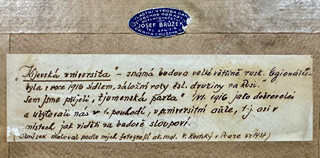 JOSEF BRŮŽEK
"Kijevská universita" - známá budova velké většině rusk. legionářů -
byla v roce 1916 sídlem, záložní roty čsl. družiny na Rusi.
Sem jsme přijeli "tjumenská parta" VI. 1916 jako dobrovolci
a ubytováni nás v I. poschodí, v universitní aule, tj. asi v
místech jak vidět na budově sloupoví.
(Obrázek maloval podle mých fotografií ak. mal. V. Konský v Praze